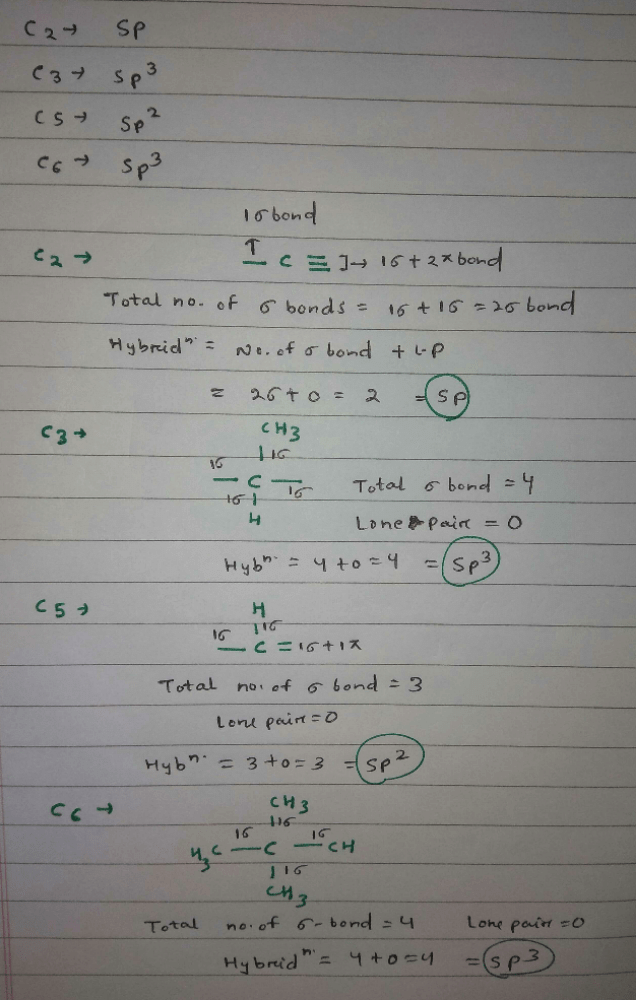 C2 → SP
C3 → Sp³
C5 → Sp²
C6 → Sp³
1σ bond
C2 → ↑
— C ≡ ]→ 1σ + 2π bond
Total no. of σ bonds = 1σ + 1σ = 2σ bond
Hybridⁿ· = No. of σ bond + L·P
= 2σ + 0 = 2 = SP
C3 →
CH3
| 1σ
1σ — C — 1σ
1σ |
H
Total σ bond = 4
Lone pair = 0
Hybⁿ· = 4 + 0 = 4 = Sp³
C5 →
H
| 1σ
1σ — C = 1σ + 1π
Total no. of σ bond = 3
Lone pair = 0
Hybⁿ· = 3 + 0 = 3 = Sp²
C6 →
CH3
| 1σ
H3C — 1σ C — 1σ CH
| 1σ
CH3
Total no. of σ-bond = 4 Lone pair = 0
Hybridⁿ· = 4 + 0 = 4 = Sp³